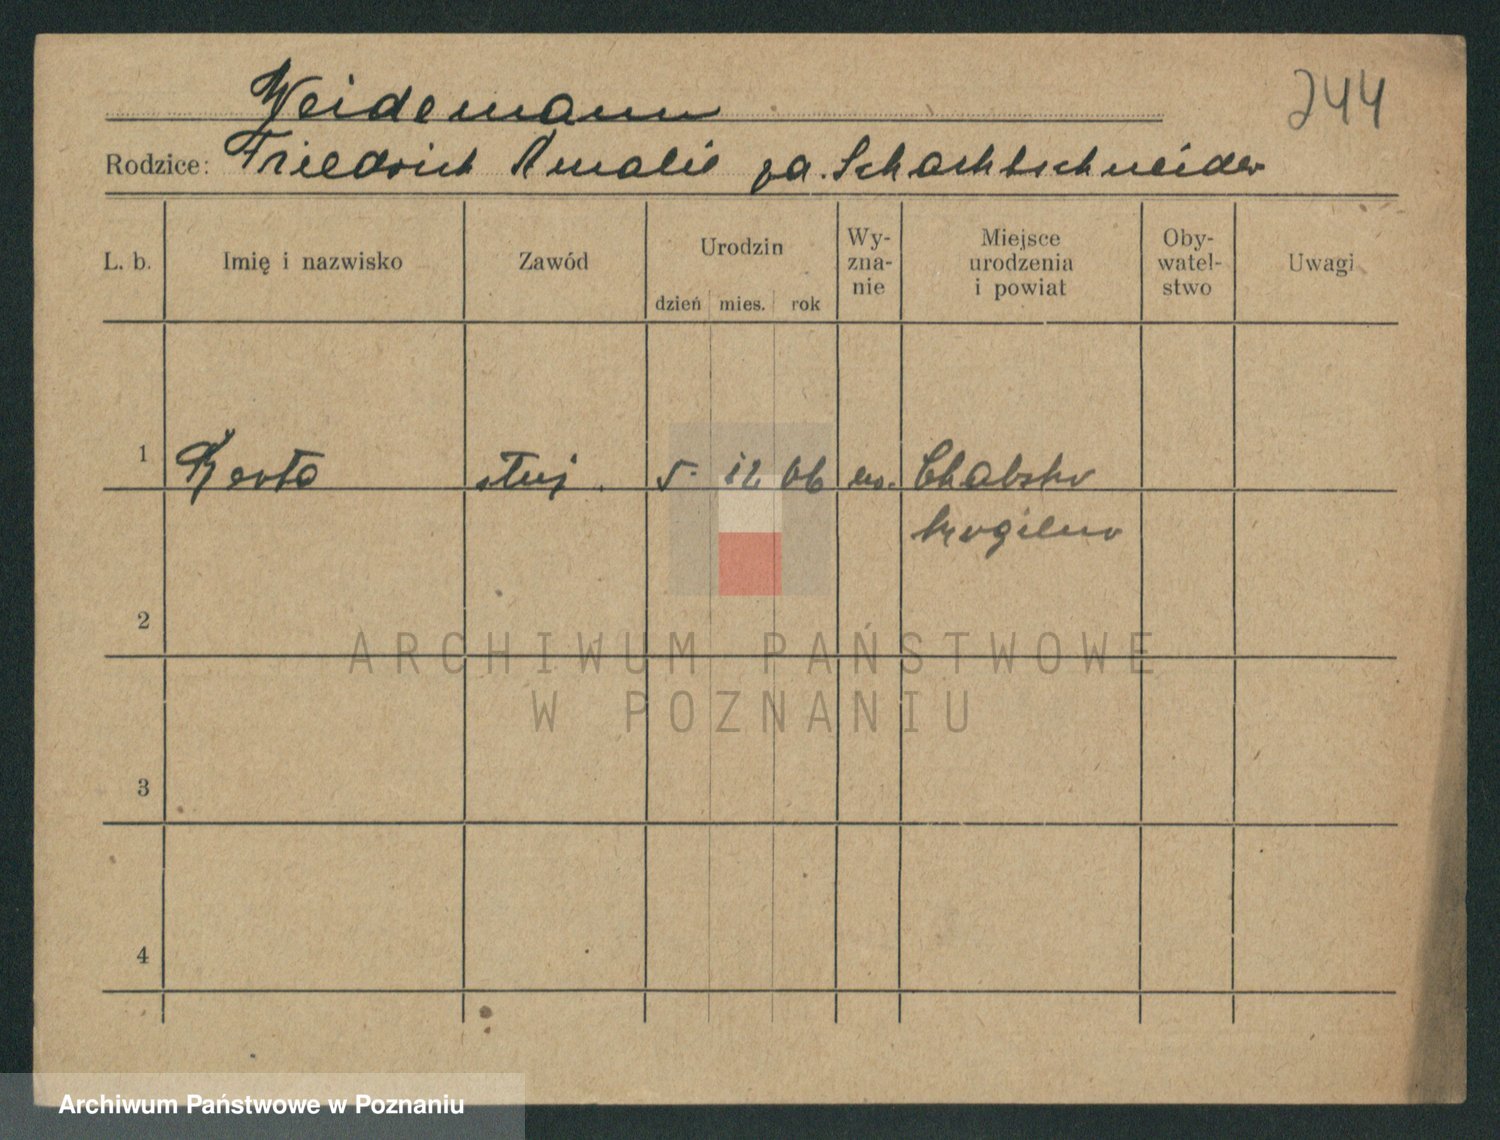 244
Weidemann
Rodzice: Friedrich Amalie za. Schachtschneider
L. b. Imię i nazwisko Zawód Urodzin dzień mies. rok Wy-zna-nie Miejsce urodzenia i powiat Oby-watel-stwo Uwagi
1 Berta służ. 5. 12 06 ew. Chabsko
Mogilno
2
ARCHIWUM PAŃSTWOWE
W POZNANIU
3
4
Archiwum Państwowe w Poznaniu